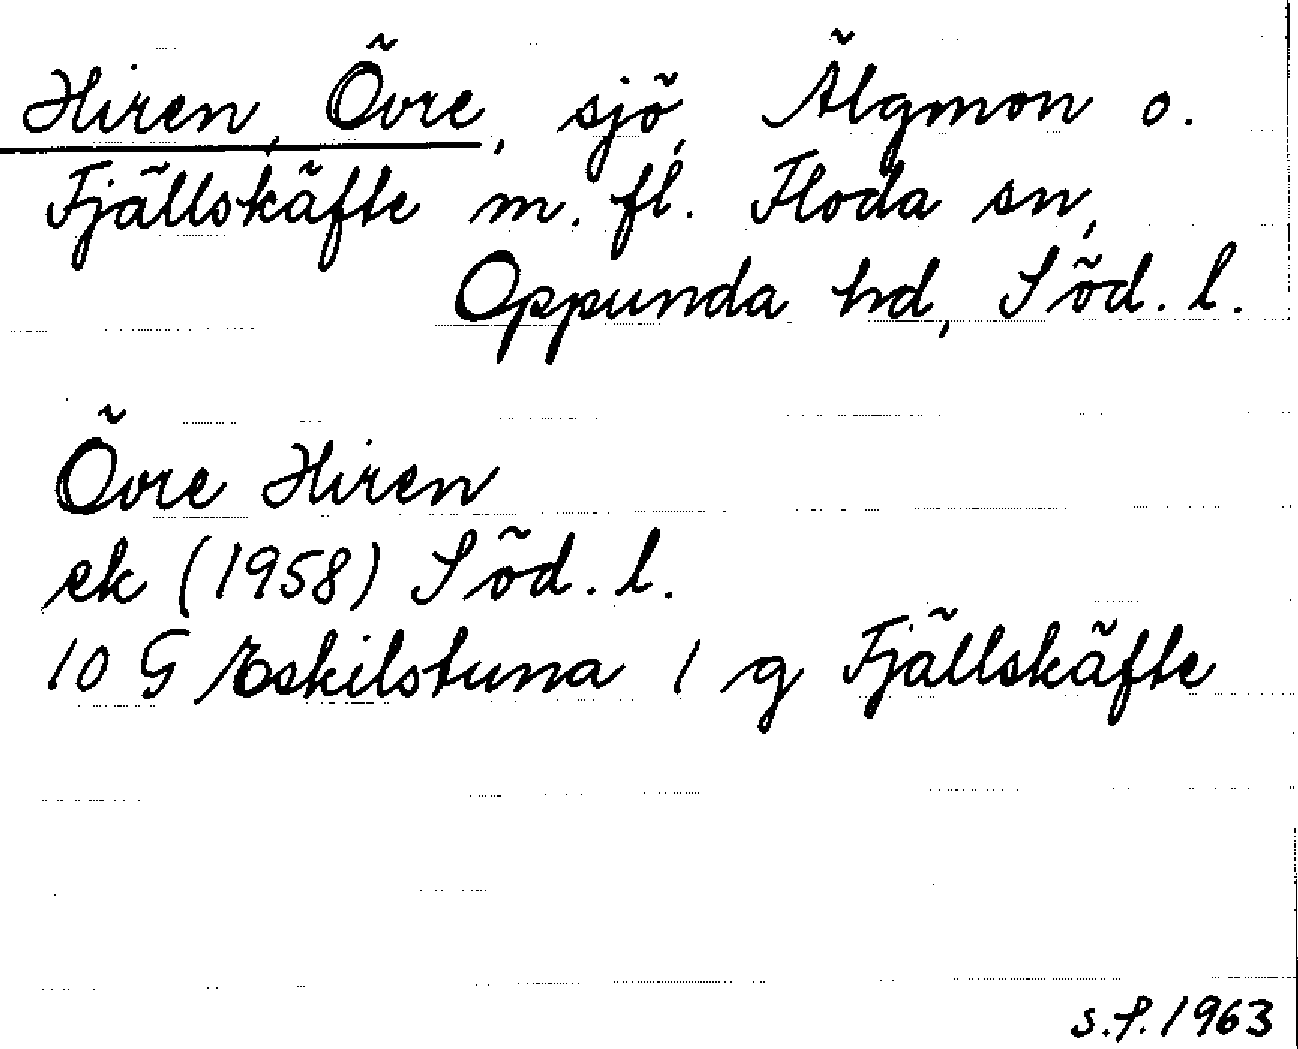 Hiren, Övre, sjö, Älgmon o.
Fjällskäfte m. fl. Floda sn,
Oppunda hd, Söd. l.
Övre Hiren
ek (1958) Söd. l.
10 G Eskilstuna 1 g Fjällskäfte
s.f. 1963